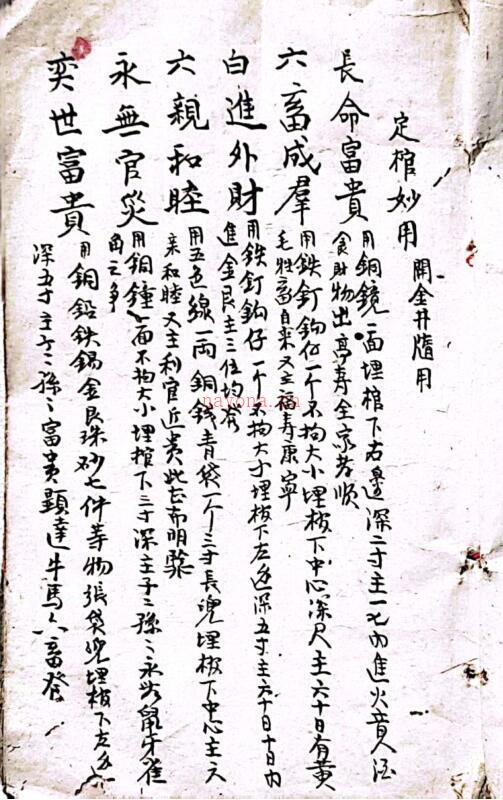 定棺妙用 開金井隨用
長命富貴 用銅鏡一面埋棺下右邊深二寸主一七內進火音人酒
食財物出高壽全家孝順
六畜成羣 用鉄釘鈎仔一个不拘大小埋板下中心深尺主六十日有黃
毛牲畜自来又主福壽康寧
白進外財 用鉄釘鈎仔一个不拘大小埋板下左边深五寸主六十日十日內
進金艮主三位均發
六親和睦 用五色線一両銅錢青袋一个三寸長兜埋板下中心主六
亲和睦又主利官近貴此法甚明騐
永無官災 用銅鐘一面不拘大小埋棺下三寸深主子子孫孫永無鼠牙雀
角之争
奕世富貴 用銅鉛鉄錫金艮珠砂七件等物張袋兜埋板下左边
深五寸主子子孫孫富貴顕達牛馬六畜發
nayona.cn